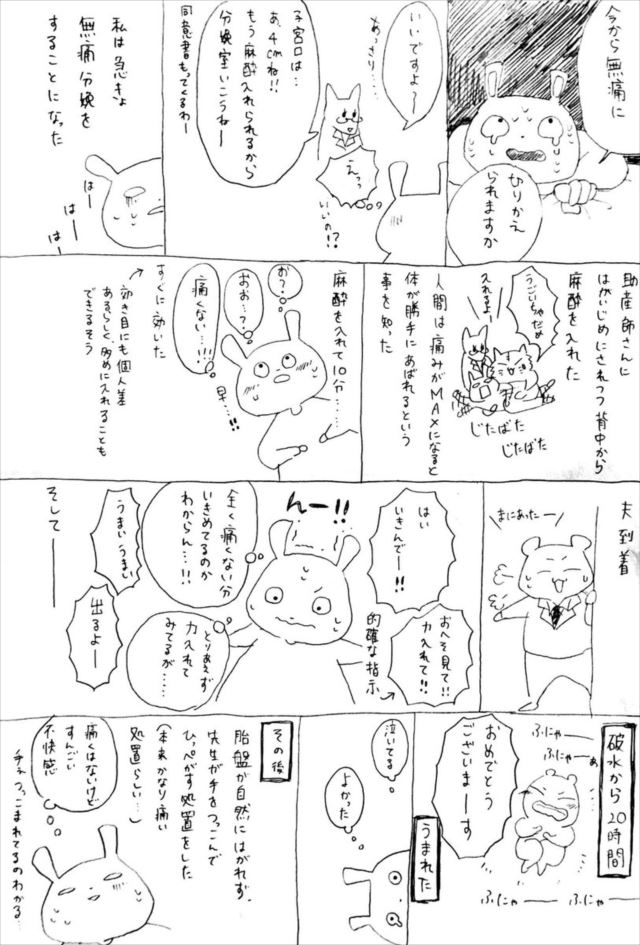 今から無痛に
きりかえ
られますか
いいですよ〜
めっさり…
子宮口は…
あ、4cmね!!
もう麻酔入れられるから
分娩室いこうねー
同意書もってくるわー
えっっ
いいの!?
私は急きょ
無痛分娩を
することになった
はー
はー
はー
助産師さんに
はがいじめにされつつ背中から
麻酔を入れた
うごいちゃだめ
入れるよ
じたばた
じたばた
じたばた
人間は痛みがMAXになると
体が勝手にあばれるという
事を知った
麻酔を入れて10分……
お?
おお…?
痛くない…!!!
早…!!
すぐに効いた
効き目にも個人差
あるらしく多めに入れることも
できるそう
夫到着
まにあったー
はい
いきんでー!!
おへそ見て!!
力入れて!!
的確な指示
んー!!
全く痛くない分
いきめてるのか
わからん…!!
とりあえず
力入れて
みてるが……
うまいうまい
出るよー
そして――
破水から20時間
ふにゃー
ふにゃー
ぁ
ふにゃー
ふにゃー
おめでとう
ございまーす
うまれた
泣いてる
よかった
その後
胎盤が自然にはがれず、
先生が手をつっこんで
ひっぺがす処置をした
(本来かなり痛い
処置らしい…)
痛くはないけど
すんごい
不快感
手、つっこまれてるのわかる…